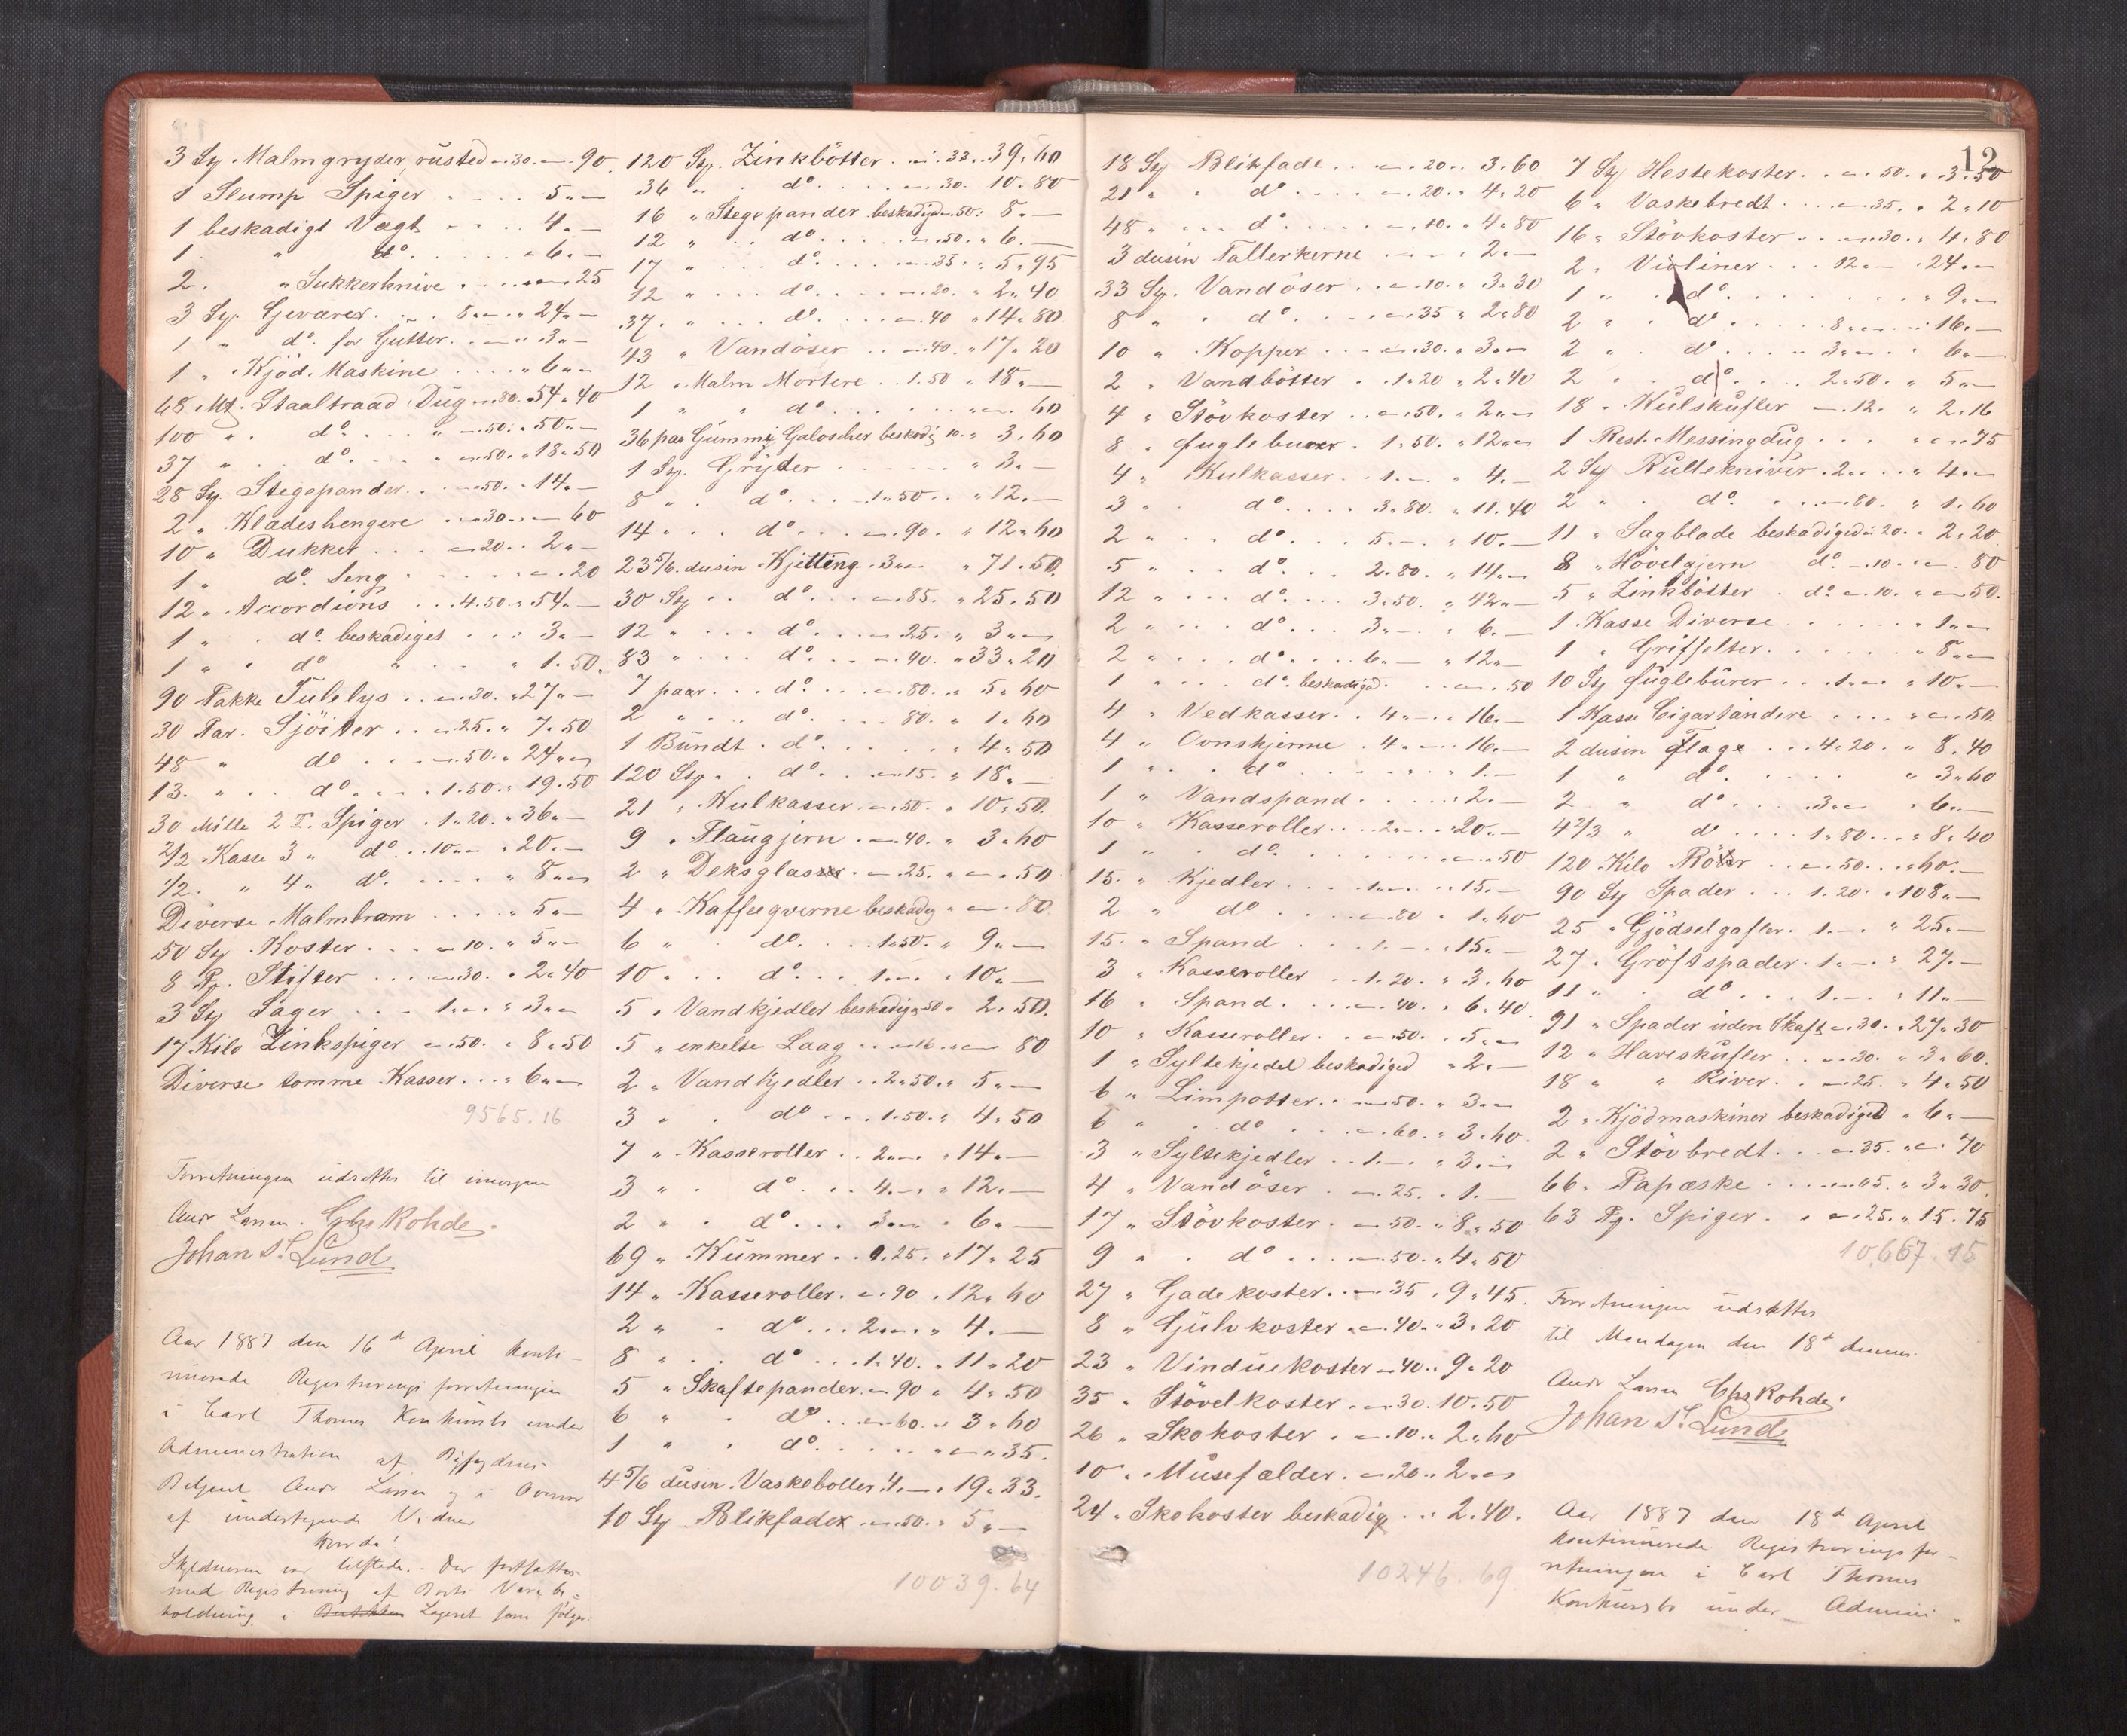 3 Sty. Malmgryder, rusted „ 30. „ 90.
1 Slump Spiger . . . . 5„—
1 beskadigt Vægt . . . . 4„—
1 „ d° . . . . „ 6„—
2. „ Sukkerknive . . . . „ 25
3 Sty. Geværer. . . 8„— „ 24„—
1 „ d° for Gutter. . . „ 3„—
1 „ Kjöd. Maskine . . . . „ 6„—
68 Mt. Staaltraad Dug „ 80. 54„40
100 „ d° . . . „ 50. „ 50„—
37 „ d° . . . „ 50. „ 18„50
28 Sty. Stegepander . . „ 50. „ 14„—
2 „ Klædeshengere . „ 30. „ „ 60
10 „ Dukker . . . „ 20. „ 2„—
1 „ d° Seng . . . . „ 20
12 „ Accordions . . . 4.50. „ 54„—
1 „ d° beskadiget . . . 3„—
1 „ d° „ . . „ 1.50.
90 Pakke Julelys . . „ 30. „ 27„—
30 Par. Sjöiter . . „ 25. „ 7.50
48 „ d° . . . „ 50. „ 24„—
13. „ d° . . . 1.50. „ 19.50
30 Mille 2 T. Spiger . 1„20. „ 36„—
2/2 Kasse 3 „ d° . . 10„— „ 20„—
1/2. „ 4 „ d° . . . . „ 8„—
Diverse Malmkram . . . . „ 5„—
50 Sty. Koster . . . „ 10. „ 5„—
8 Pp. Stifter . . . „ 30. „ 2„40
3 Sty Sager . . . 1„— „ 3„—
17 Kilo Zinkspiger „ 50. „ 8„50
Diverse tomme Kasser. . . „ 6„—
9565.16
Forretningen udsættes til imorgen
Andr Larsen. Chs Rohde.
Johan S. Lund
Aar 1887 den 16d April konti-
nuerede Registreringsforretningen
i Carl Thomes Konkursbo under
Administration af Byfogdens
Betjent Andr Larsen og i Overvær
af undertegnede Vidner
Hvorda!
Skyldneren var tilstede. - Der fortsattes
med Registrering af Boets Varebe-
holdning i Lageret som følger
120 Sty. Zinkbötter . . „ 33. „ 39„60
36 „ d° . . . . „ 30. 10.80
16 „ Stegepander beskadiged „ 50. „ 8„—
12 „ d° . . . . „ 50. „ 6„—
17 „ d° . . . . „ 35. „ 5„95
12 „ d° . . . . „ 20. „ 2„40
37 „ d° . . . . „ 40 „ 14„80
43 „ Vandöser . . „ 40. „ 17„20
12 „ Malm Mortere . . 1.50 „ 18„—
1 „ „ d° . . . . . „ „ 60
36 par Gummi Galoscher beskadig 10. „ 3„60
1 Sty. Gryder . . . . . „ 3„—
8 „ d° . . . 1„50. . „ 12„—
14 „ d° . . . „ 90. „ 12„60
23 5/6 dusin Kjetting . 3„— „ 71„50.
30 Sty . . d° . . . „ 85. „ 25„50
12 „ . . . d° . . . „ 25. „ 3„—
83 „ . . . d° . . . „ 40. „ 33„20
7 paar . . . d° . . . „ 80. „ 5„60
2 „ . . d° . . . „ 80. „ 1„60
1 Bundt . d° . . . . . „ 4„50
120 Sty. . d° . . „ 15. „ 18„—
21 „ Kulkasser „ 50. „ 10„50.
9 „ Flaugjern . „ 40. „ 3„60
2 „ Deksglasser . „ 25. „ „ 50
4 „ Kaffeqverne beskadig „ „ 80
6 „ d° . . . 1„50. „ 9„—
10 „ . d° . . . 1„— „ 10„—
5 „ Vandkjedler beskadig „ 50 „ 2„50.
5 „ enkelte Laag . . „ 16 „ „ 80
2 „ Vandkjedler . . 2„50. „ 5„—
3 „ d° . . . 1.50. „ 4„50
7 „ Kasseroller . . 2„— „ 14„—
3 „ . d° . . . 4„— „ 12„—
2 „ . d° . . . 3„— „ 6„—
69 „ Kummer . . „ 25. „ 17„25
14 „ Kasseroller. „ 90 „ 12„60
2 „ . d° . . . 2„— „ 4„—
8 „ . d° . . . 1„40. „ 11„20
5 „ Skaftepander. „ 90 „ 4„50
6 „ . d° . . . „ 60. „ 3„60
1 „ „ d° . . . . „ „ 35.
4 5/6 dusin. Vaskeboller. 4„— „ 19„33.
10 Sty Blikfader . „ 50. „ 5„—
10039.64
12
18 Sty Blikfade . . . „ 20. „ 3„60
21 „ d° . . . . „ 20. „ 4„20
48 „ . . d° . . . . „ 10. „ 4„80
3 dusin Tallerkerne . . . . 2„—
33 Sty. Vandöser . . „ 10. „ 3„30
8 „ „ d° . . . „ 35 „ 2„80
10 „ Kopper . . . „ 30. „ 3„—
2 „ Vandbötter . . 1„20 „ 2„40
4 „ Stövkoster . . „ 50. „ 2„—
8 „ fuglebuer . 1„50. „ 12„—
4 „ Kulkasser . . 1„— „ 4„—
3 „ d° . . . . 3„80. „ 11„40
2 „ . . d° . . . 5„— „ 10„—
5 „ . . d° . . . 2„80. „ 14„—
12 „ . . . d° . . . 3„50. „ 42„—
2 „ . . . d° . . . 3„— „ 6„—
2 „ . . . d° . . . 6„— „ 12„—
1 „ . . . d° beskadiged . . „ 50
4 „ Vedkasser. . 4„— „ 16„—
4 „ Ovnskjerme . 4„— „ 16„—
1 „ . . d° . . . . . „ 1„—
1 „ Vandspand . . . . „ 2„—
10 „ Kasseroller . . . 2„— „ 20„—
1 „ . d° . . . . . „ „ 50
15. „ Kjedler . . . 1„— „ 15„—
2 „ d° . . . . „ 80 „ 1„60
15. „ Spand . . . 1„— „ 15„—
3 „ Kasseroller . . 1„20. „ 3„60
16 „ Spand . . . . „ 40. „ 6„40.
10 „ Kasseroller . . „ 50. „ 5„—
1 „ Syltekjedel beskadiged „ 2„—
6 „ Limpotter. . „ 50. „ 3„—
6 „ . d° . . . „ 60. „ 3„60
3 „ Syltekjedler . . 1„— „ 3„—
4 „ Vandöser . „ 25. „ 1„—
17 „ Stövkoster . „ 50. „ 8„50
9 „ . d° . . . „ 50. „ 4„50
27 „ Gadekoster . . „ 35 „ 9„45.
8 „ Gulvkoster „ 40. „ 3„20
23 „ Vinduekoster „ 40. „ 9„20
35 „ Stövelkoster . „ 30. 10.50
26 „ Skokoster . „ 10. „ 2„60
10 „ Musefælder . „ 20. „ 2„—
24 „ Skokoster beskadig . „ 2.40.
10246.69
7 Sty Hestekoster. . „ 50. „ 3„50
6 „ Vaskebredt . . . „ 35. „ 2„10
16 „ Stövkoster . . „ 30. „ 4„80
2 „ Violiner . . . 12„— „ 24„—
1 „ . d° . . . . . . . „ 9„—
2 „ . d° . . . . 8„— „ 16„—
2 „ . d° . . . . 3„— „ 6„—
2 „ . d° . . . . 2„50. „ 5„—
18 „ Kulskufler . „ 12. „ 2„16
1 Rest. Messingdug . . . „ „ 75
2 Sty Rulleknivir . 2„ . „ 4„—
2 „ d° . . „ 80. „ 1„60
11 „ Sagblade beskadiged „ 20. „ 2„20
8 „ Hövelgjern d° „ 10. „ „ 80
5 „ Zinkbötter . d° „ 10. „ „ 50.
1 Kasse Diverse . . . . . . „ 1„—
1 „ Griffelter . . . . . „ 8„—
10 Sty fuglebürer . . 1„— „ 10„—
1 Kasse Cigartændere . . . „ „ 50.
2 dusin Flage . . . 4„20. „ 8„40
1 „ d° . . . . . „ 3„60
2 „ d° . . . 3„— „ 6„—
4 2/3 „ d° . . . 1„80. . . „ 8„40
120 Kilo . . „ 50. „ 60„—
90 Sty Spader . . . 1.20. „ 108„—
25 „ Gjödselgafler . 1„— „ 25„—
27 „ Gröftspader . 1„— „ 27„—
11 „ d° . . . 1„— „ 11„—
91 „ Spader uden Skaft „ 30. „ 27„30
12 „ Haveskufler . . „ 30. „ 3„60.
18 „ „ River. . „ 25. „ 4„50
2 „ Kjödmaskiner beskadiged „ 6„—
2 „ Stövbredt . . . „ 35. „ „ 70
66 „ Papæske . . . . „ 05. „ 3„30.
63 Pp. Spiger . . „ 25. „ 15.75
10,667.15
Forretningen udsættes
til Mandagen den 18d dennes.
Andr Larsen Chs Rohde.
Johan S. Lund
Aar 1887 den 18d April
kontinuerede Registreringsfor-
retningen i Carl Thomes
Konkursbo under Admini-